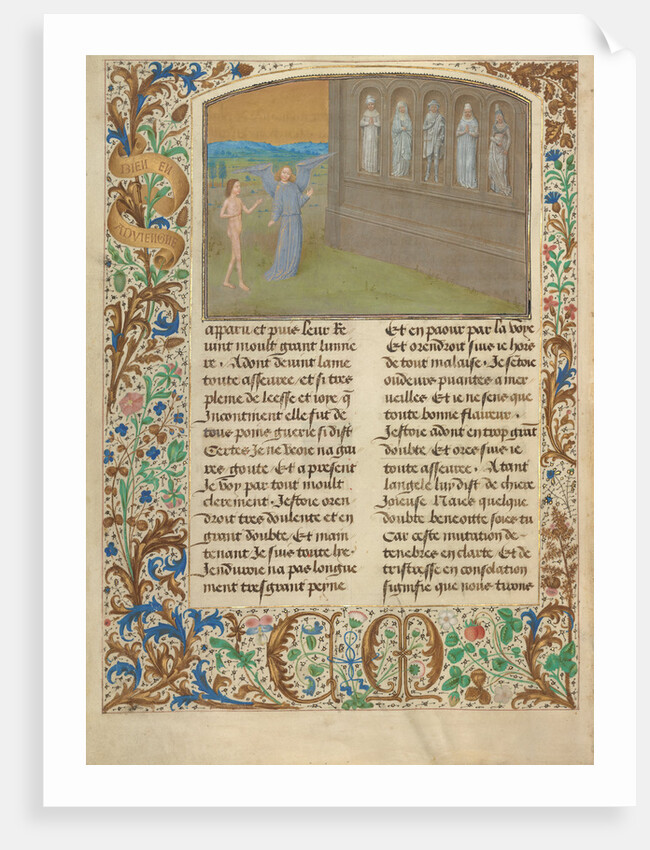 BIEN EN
ADVIENGNE
apparu et puis leur Re
uint moult grant lumie
re. Adont deuint lame
toute asseuree et si tres
pleine de leesse et ioye q̄
Incontinent elle fut de
tous poins guerie si dist
Certes Je ne veoie na gai
res goute Et a present
Je voy par tout moult
clerement. Jestoie oren
droit tres doulente et en
grant doubte. Et main
tenant Je suis toute lye.
Jenduroie na pas longue
ment tresgrant peyne
Et en paour par la voye
Et orendroit suis ie hors
de tout malaise. Jestoie
oudeurs puantes a mer
ueilles Et ie ne sens que
toute bonne flaireur.
Jestoie adont en trop grāt
doubte Et ores suis ie
toute asseuree. Atant
langele luy dist de chiere
Joieuse Naies quelque
doubte benoitte soies tu
Car ceste mutation de
tenebres en clarte Et de
tristresse en consolation
signifie que nous tirons
C M